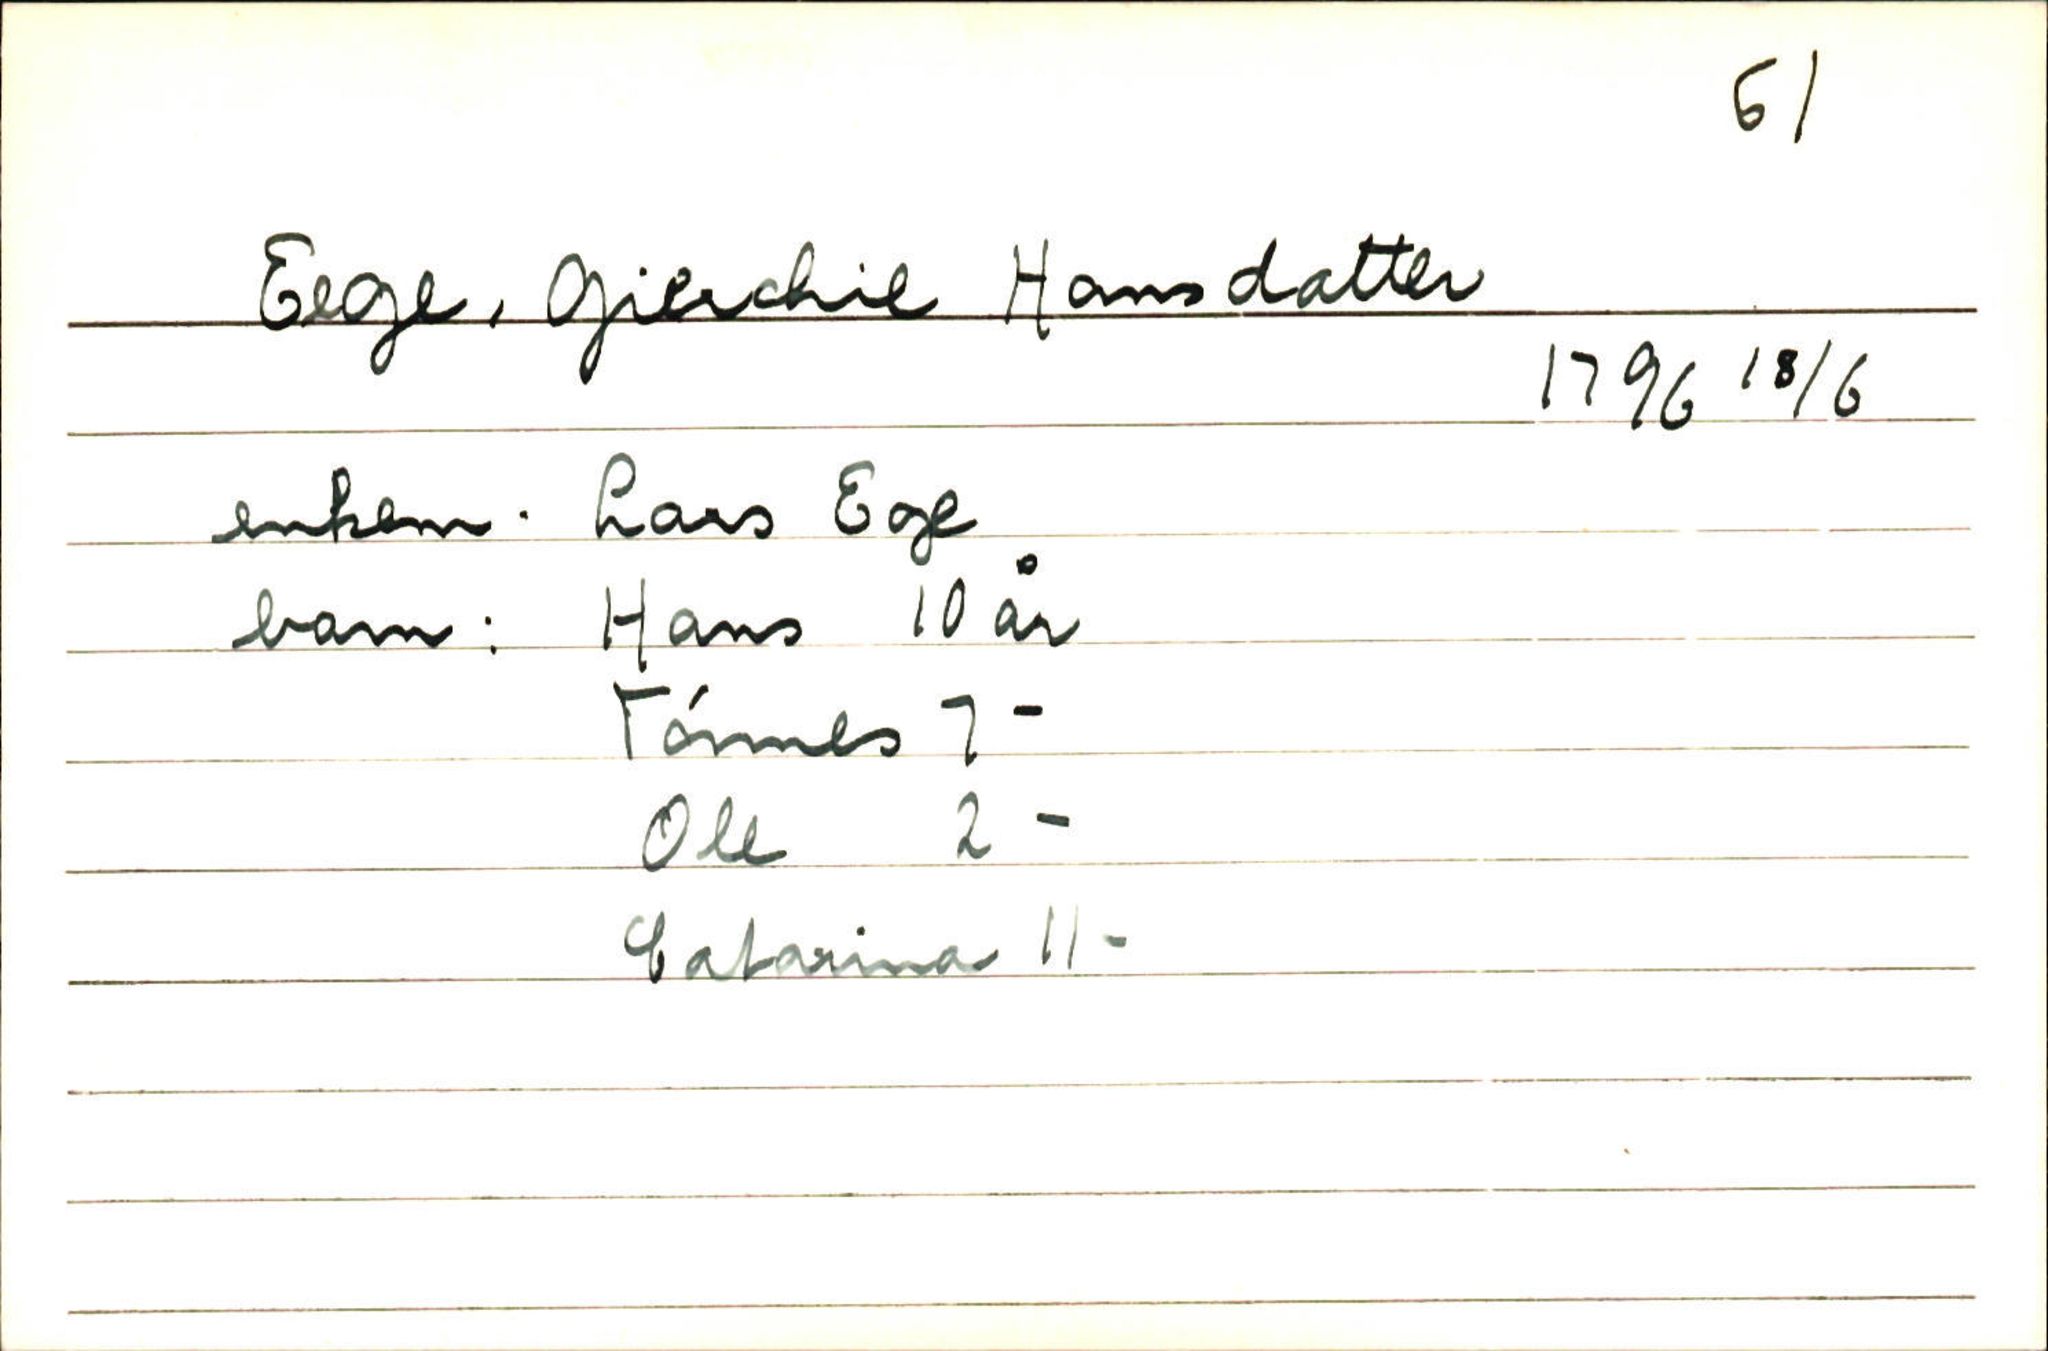 61
Eege, Gierchie Hansdatter
1796 18/6
enkem. Lars Ege
barn: Hans 10 år
Tónnes 7 -
Ole 2 -
Catarina 11 -